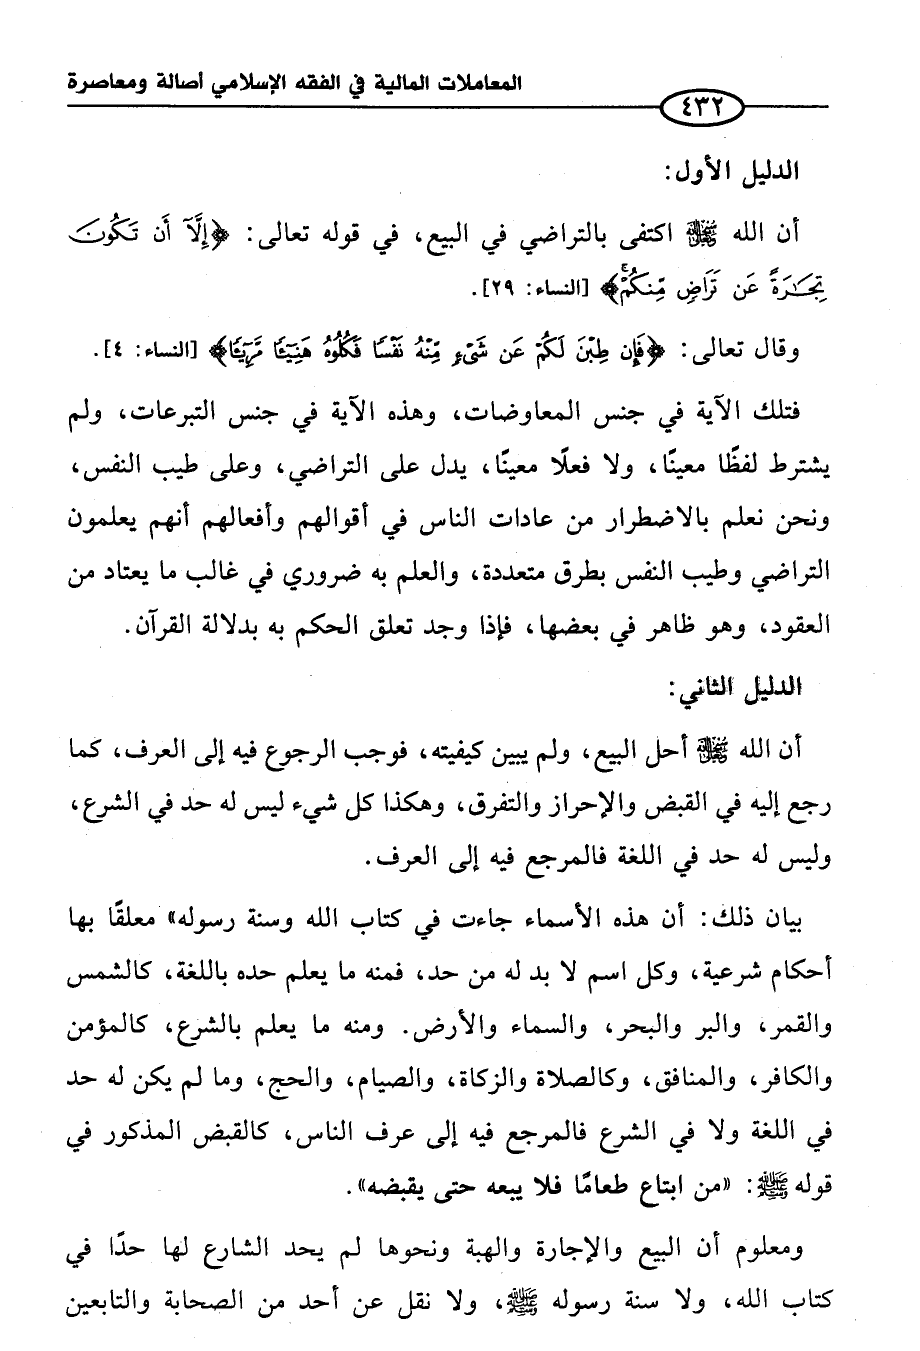 المعاملات المالية في الفقه الإسلامي أصالة ومعاصرة
٤٣٢
الدليل الأول:
أن الله ﷻ اكتفى بالتراضي في البيع، في قوله تعالى: ﴿إِلَّآ أَن تَكُونَ
تِجَٰرَةً عَن تَرَاضٍ مِّنكُمْۚ﴾ [النساء: ٢٩].
وقال تعالى: ﴿فَإِن طِبْنَ لَكُمْ عَن شَىْءٍ مِّنْهُ نَفْسًا فَكُلُوهُ هَنِيٓـًٔا مَّرِيٓـًٔا﴾ [النساء: ٤].
فتلك الآية في جنس المعاوضات، وهذه الآية في جنس التبرعات، ولم
يشترط لفظًا معينًا، ولا فعلًا معينًا، يدل على التراضي، وعلى طيب النفس،
ونحن نعلم بالاضطرار من عادات الناس في أقوالهم وأفعالهم أنهم يعلمون
التراضي وطيب النفس بطرق متعددة، والعلم به ضروري في غالب ما يعتاد من
العقود، وهو ظاهر في بعضها، فإذا وجد تعلق الحكم به بدلالة القرآن.
الدليل الثاني:
أن الله ﷻ أحل البيع، ولم يبين كيفيته، فوجب الرجوع فيه إلى العرف، كما
رجع إليه في القبض والإحراز والتفرق، وهكذا كل شيء ليس له حد في الشرع،
وليس له حد في اللغة فالمرجع فيه إلى العرف.
بيان ذلك: أن هذه الأسماء جاءت في كتاب الله وسنة رسوله» معلقًا بها
أحكام شرعية، وكل اسم لا بد له من حد، فمنه ما يعلم حده باللغة، كالشمس
والقمر، والبر والبحر، والسماء والأرض. ومنه ما يعلم بالشرع، كالمؤمن
والكافر، والمنافق، وكالصلاة والزكاة، والصيام، والحج، وما لم يكن له حد
في اللغة ولا في الشرع فالمرجع فيه إلى عرف الناس، كالقبض المذكور في
قوله ﷺ: «من ابتاع طعامًا فلا يبعه حتى يقبضه».
ومعلوم أن البيع والإجارة والهبة ونحوها لم يحد الشارع لها حدًا في
كتاب الله، ولا سنة رسوله ﷺ، ولا نقل عن أحد من الصحابة والتابعين